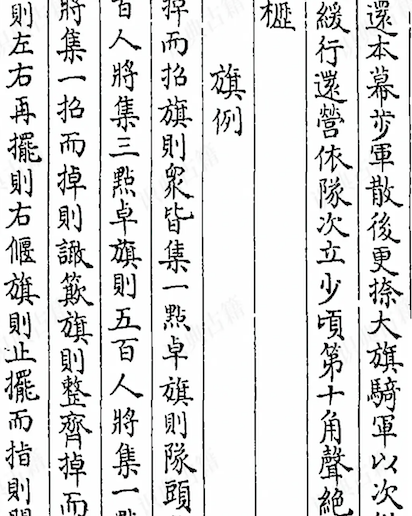 還本幕歩軍散後更捺大旗騎軍以次
緩行還營依隊次立少頃第十角聲絕
櫪
旗例
掉而招旗則衆皆集一點卓旗則隊頭
百人將集三點卓旗則五百人將集一點
將集一招而掉則諏簌旗則整齊掉而
則左右再擺則右偃旗則止擺而指則